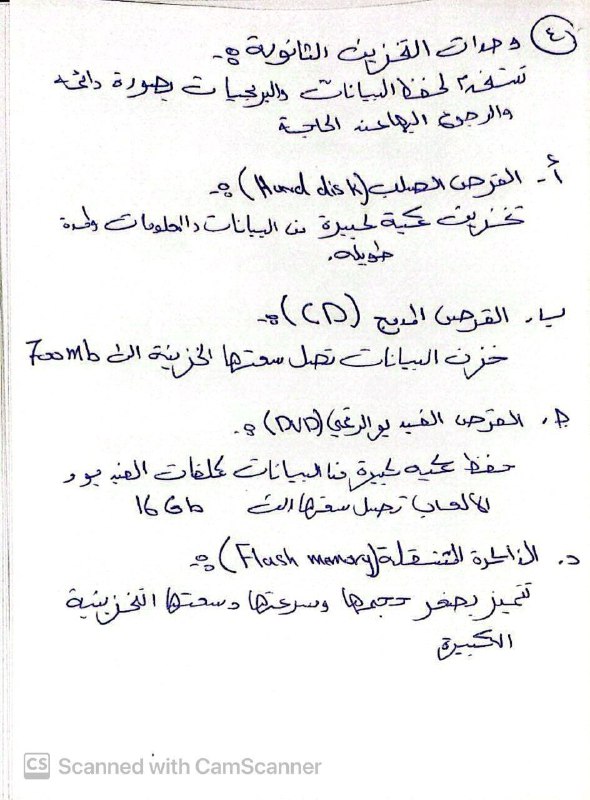 ٤ وحدات التخزين الثانوية :-
تستخدم لحفظ البيانات والبرمجيات بصورة دائمه
والرجوع اليها عند الحاجة
أ- القرص الصلب (Hard disk) :-
تخزين كمية كبيرة من البيانات والمعلومات ولمدة
طويله.
ب. القرص المدمج (CD) :-
خزن البيانات تصل سعتها الخزنية الى 700mb
ج. القرص الفيديو الرقمي (DVD) :-
حفظ كميه كبيرة من البيانات كملفات الفيديو و
الألعاب تصل سعتها الى 16Gb
د. الذاكرة المتنقلة (Flash memory) :-
تتميز بصغر حجمها وسرعتها وسعتها التخزينية
الكبيرة
CS Scanned with CamScanner